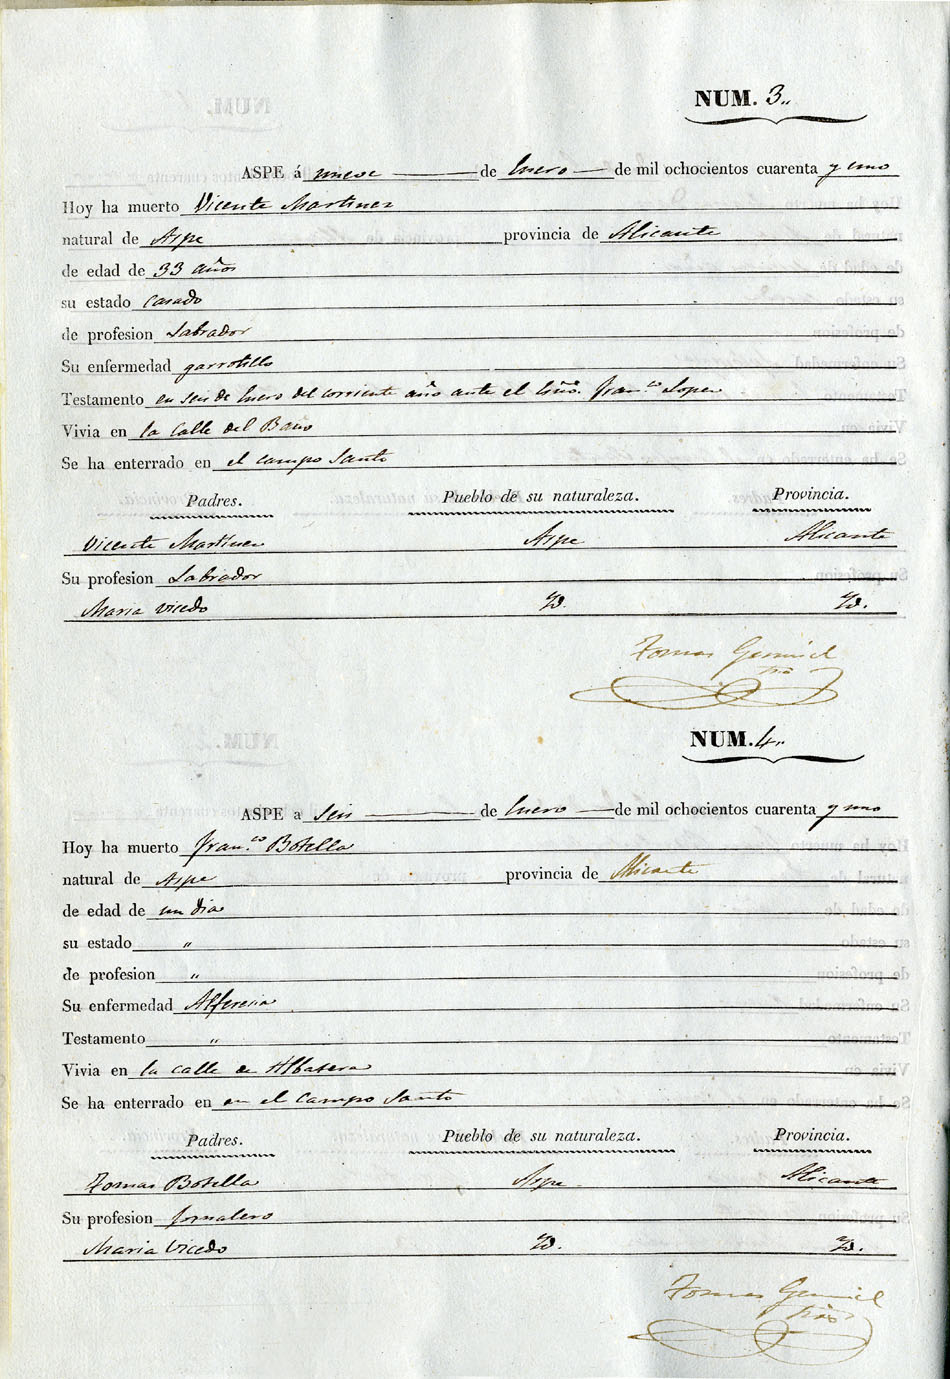 NUM. 3..
ASPE á nueve de Enero de mil ochocientos cuarenta y uno
Hoy ha muerto Vicente Martinez
natural de Aspe provincia de Alicante
de edad de 33 años
su estado casado
de profesion Labrador
Su enfermedad garrotillo
Testamento en seis de Enero del corriente año ante el Esño. Fran.co Lopez
Vivia en la Calle del Baño
Se ha enterrado en el campo Santo
Padres. Pueblo de su naturaleza. Provincia.
Vicente Martinez Aspe Alicante
Su profesion Labrador
Maria Vicedo Yd. Yd.
Tomas
NUM. 4..
ASPE a Seis de Enero de mil ochocientos cuarenta y uno
Hoy ha muerto Fran.co Botella
natural de Aspe provincia de Alicante
de edad de un dia
su estado "
de profesion "
Su enfermedad Alferesia
Testamento "
Vivia en la calle de Albatera
Se ha enterrado en en el campo Santo
Padres. Pueblo de su naturaleza. Provincia.
Tomas Botella Aspe Alicante
Su profesion Jornalero
Maria Vicedo Yd. Yd.
Tomas